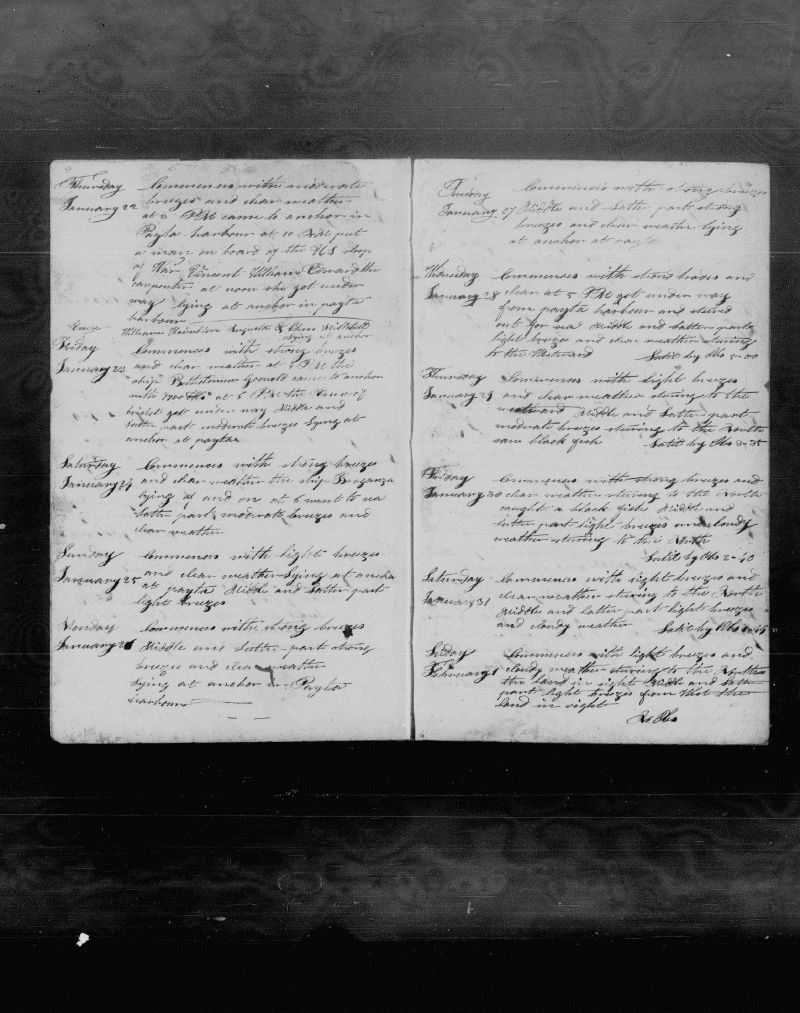 Thursday Commences with moderate
January 22 breezes and clear weather
at 2 PM came to anchor in
Payta harbour at 10 AM put
a man on board of the US sloop
of War Vincent William Edward the
carpenter at noon she got under
way lying at anchor in payta
harbour
William Hamilton Augusta & Chris Mitchell
lying at anchor
Friday Commences with strong breezes
January 23 and clear weather at 5 PM the
ship Bartholomew Gosnold came to anchor
with at 5 PM the
bright got under way Middle and
latter part moderate breezes lying at
anchor at payta
Saturday Commences with strong breezes
January 24 and clear weather the ship Braganza
lying of and on at 6 went to sea
latter part moderate breezes and
clear weather
Sunday Commences with light breezes
January 25 and clear weather lying at anchor
at payta Middle and latter part
light breezes
Monday Commences with strong breezes
January 26 Middle and latter part strong
breezes and clear weather
lying at anchor in Payta
harbour
Tuesday Commences with strong breezes
January 27 Middle and latter part strong
breezes and clear weather lying
at anchor at payta
Wensday Commences with strong breezes and
January 28 clear at 5 PM got under way
from payta harbour and steered
out for sea Middle and latter part
light breezes and clear weather steering
to the Westward Latit by Obs
Thursday Commences with light breezes
January 29 and clear weather steering to the
westward Middle and latter part
moderate breezes steering to the North
saw black fish Latit by Obs 3-35
Friday Commences with strong breezes and
January 30 clear weather steering to the North
caught a black fish Middle and
latter part light breezes and cloudy
weather steering to the North
Latit by Obs 2-40
Saturday Commences with light breezes and
January 31 clear weather steering to the North
Middle and latter part light breezes
and cloudy weather Latit by Obs
Sunday Commences with light breezes and
February 1 cloudy weather steering to the North
the land in sight Middle and latter
part light breezes from that the
land in sight
No Obs